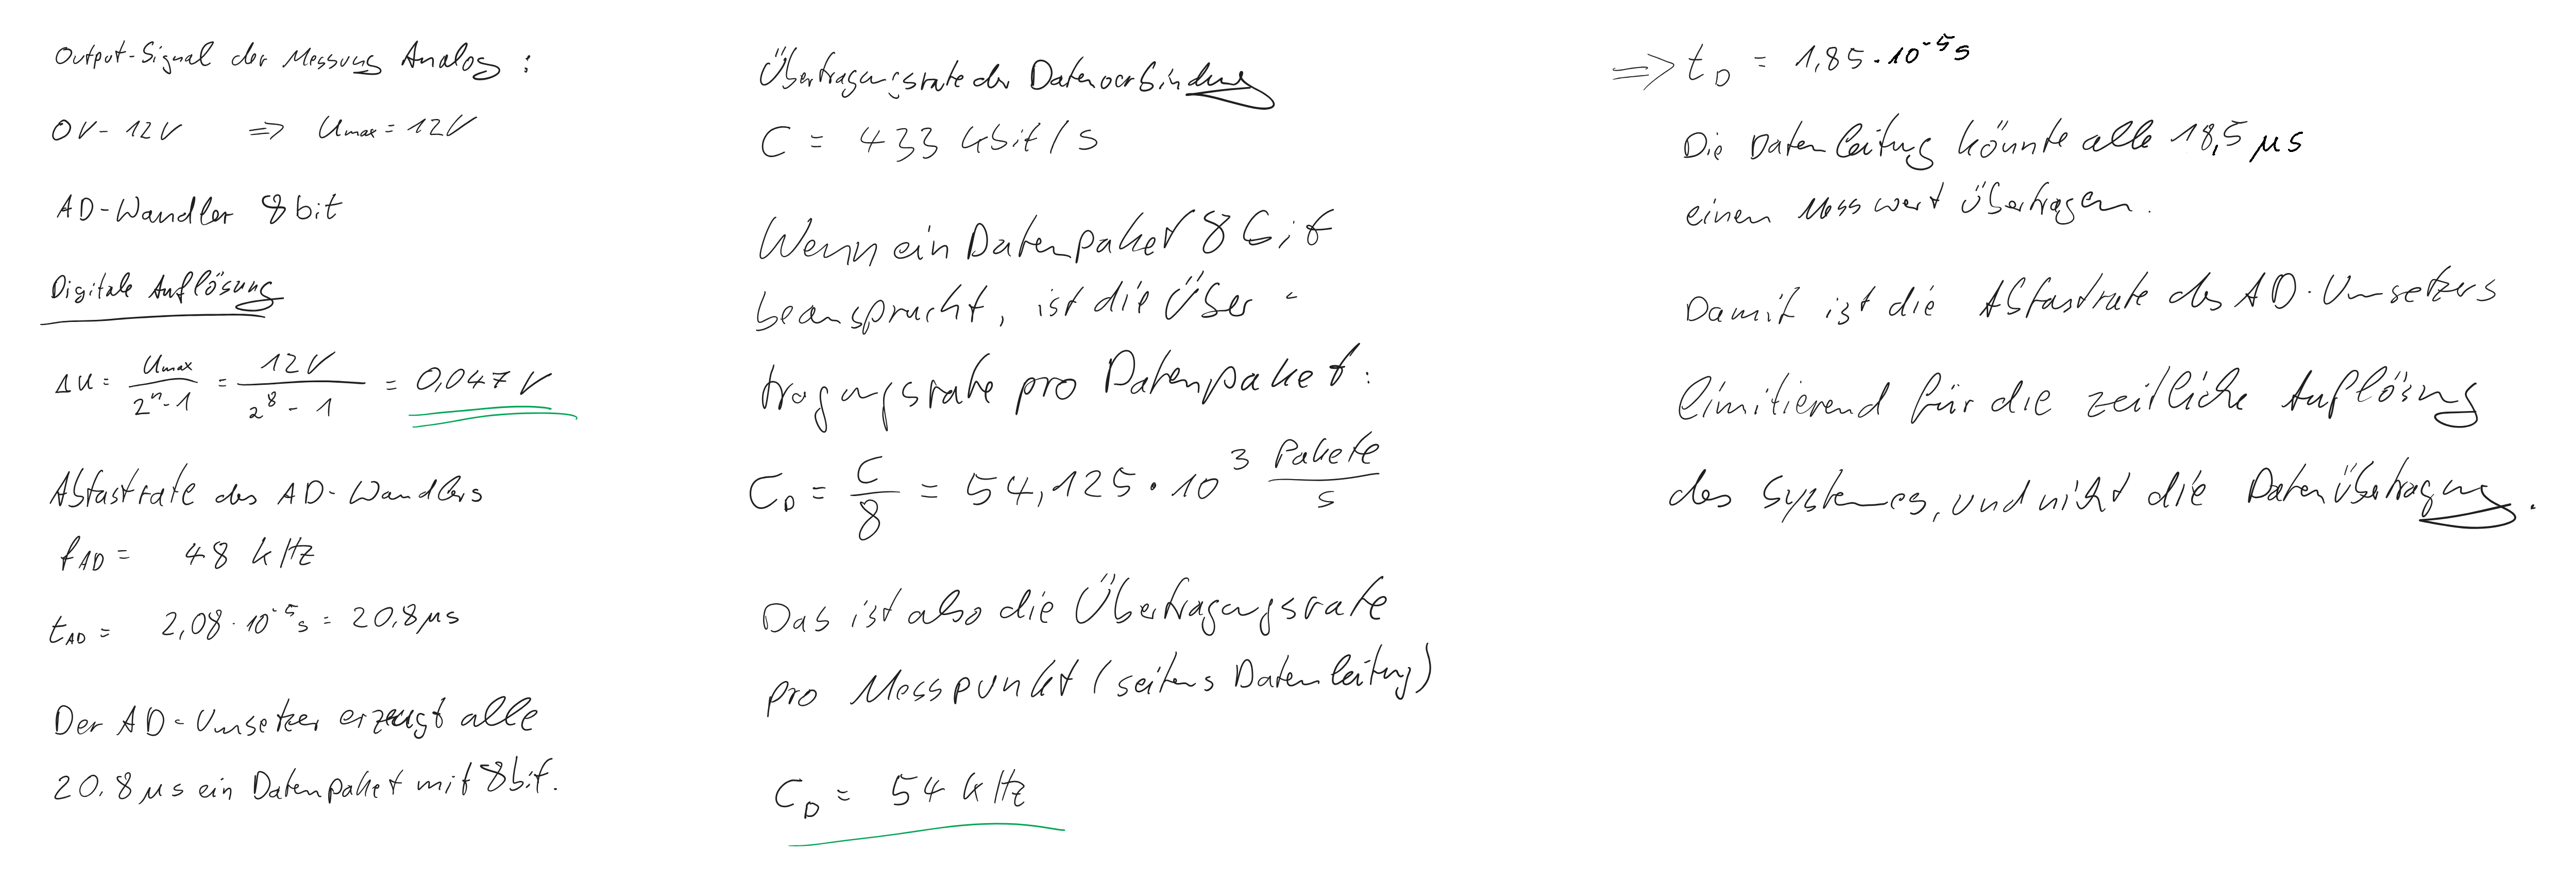 Output-Signal der Messung Analog:
0V - 12V ⇒ Umax = 12V
AD-Wandler 8bit
Digitale Auflösung
ΔU = Umax / (2^n - 1) = 12V / (2^8 - 1) = 0,047 V
Abtastrate des AD-Wandlers
fAD = 48 kHz
tAD = 2,08 · 10^-5 s = 20,8 µs
Der AD-Umsetzer erzeugt alle
20.8 µs ein Datenpaket mit 8bit.
Übertragungsrate der Datenverbindung
C = 433 kbit/s
Wenn ein Datenpaket 8 bit
beansprucht, ist die Über-
tragungsrate pro Datenpaket:
CD = C / 8 = 54,125 · 10^3 Pakete / s
Das ist also die Übertragungsrate
pro Messpunkt (seitens Datenleitung)
CD = 54 kHz
⇒ tD = 1,85 · 10^-5 s
Die Datenleitung könnte alle 18,5 µs
einen Messwert übertragen.
Damit ist die Abtastrate des AD-Umsetzers
limitierend für die zeitliche Auflösung
des Systemes, und nicht die Datenübertragung.